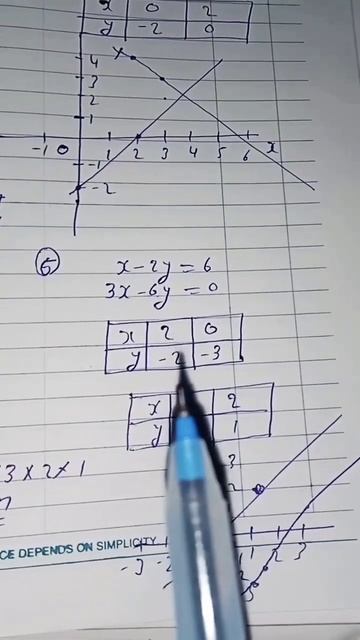 x 0 2
y -2 0
y
4
3
2
1
-1 0 1 2 3 4 5 6 x
-1
-2
5 x-2y=6
3x-6y=0
x 2 0
y -2 -3
x 2
y 1
3x2x1
3
1 2 3
CE DEPENDS ON SIMPLICITY
-3